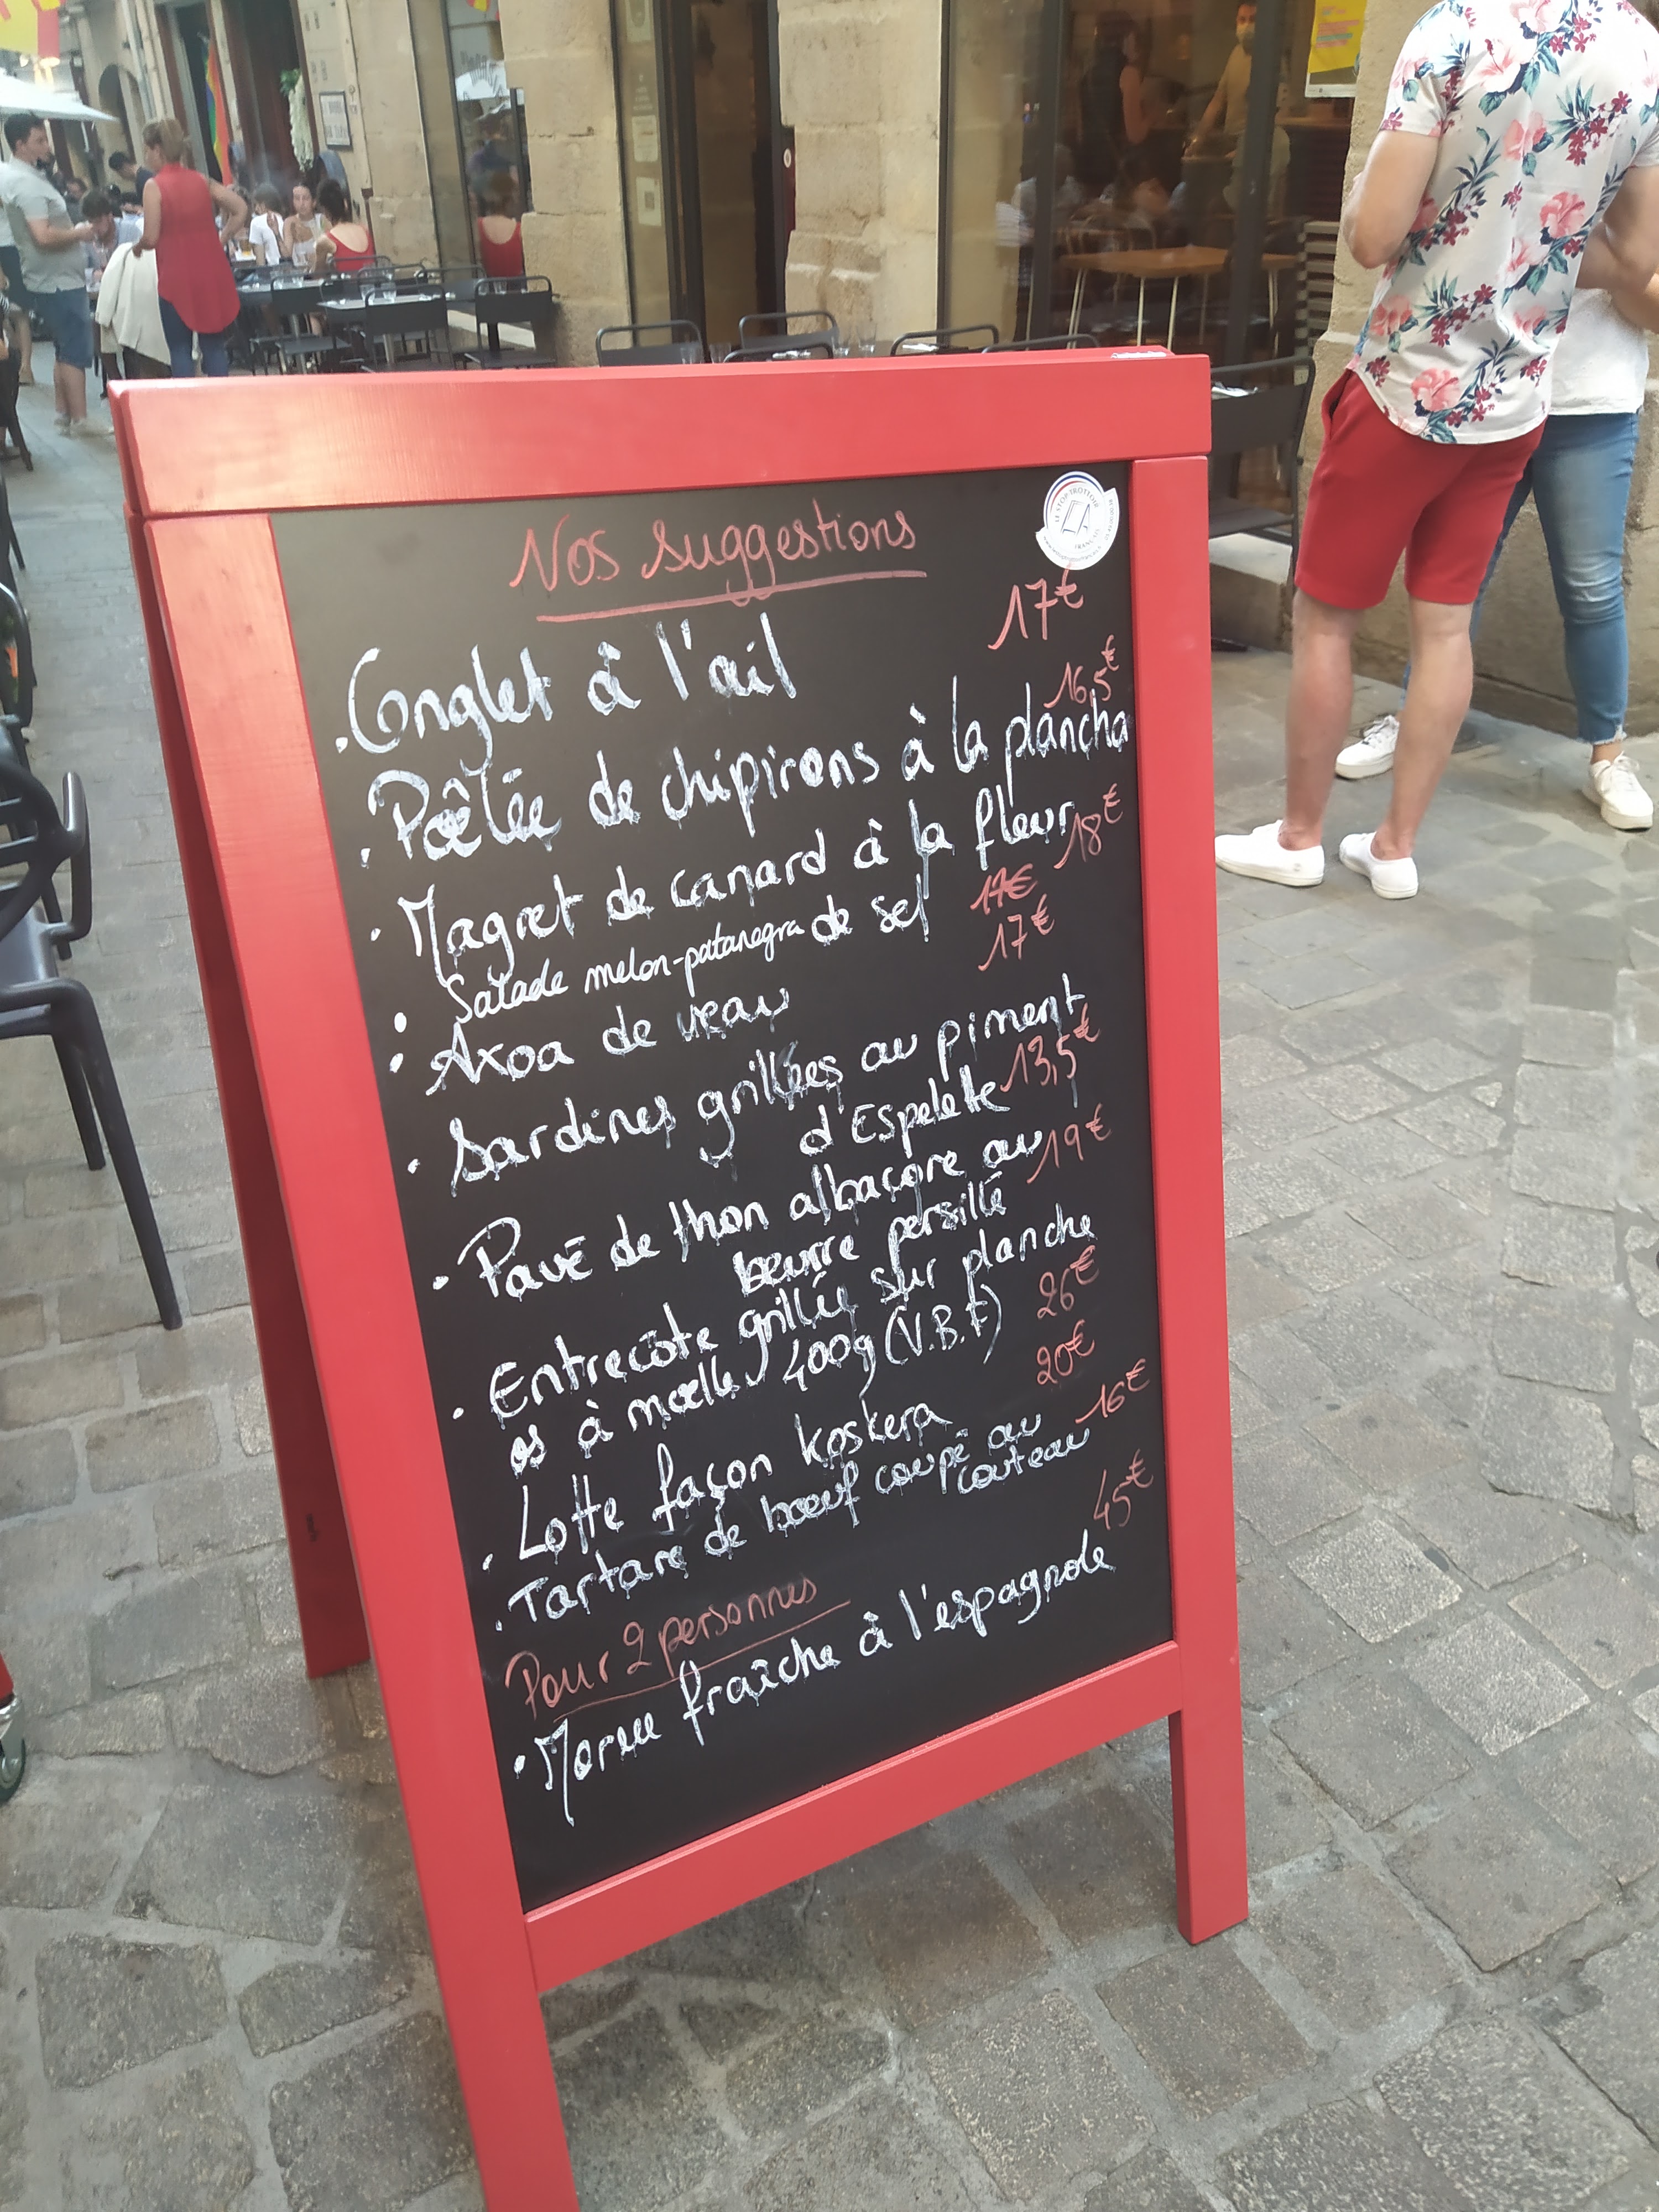 Nos suggestions
LE STOP TROTTOIR
FRANÇAIS
17€
. Onglet à l'ail
16,5€
. Poêlée de chipirons à la plancha
. Magret de canard à la fleur 18€
de sel
. Salade melon-patanegra 17€
. Axoa de veau 17€
. Sardines grillées au piment
d'Espelette 13,5€
. Pavé de thon albacore au 19€
beurre persillé
. Entrecôte grillée sur planche
os à moelle 400g (V.B.F) 26€
. Lotte façon koskera 20€
. Tartare de bœuf coupé au 16€
couteau
Pour 2 personnes 45€
. Morue fraîche à l'espagnole